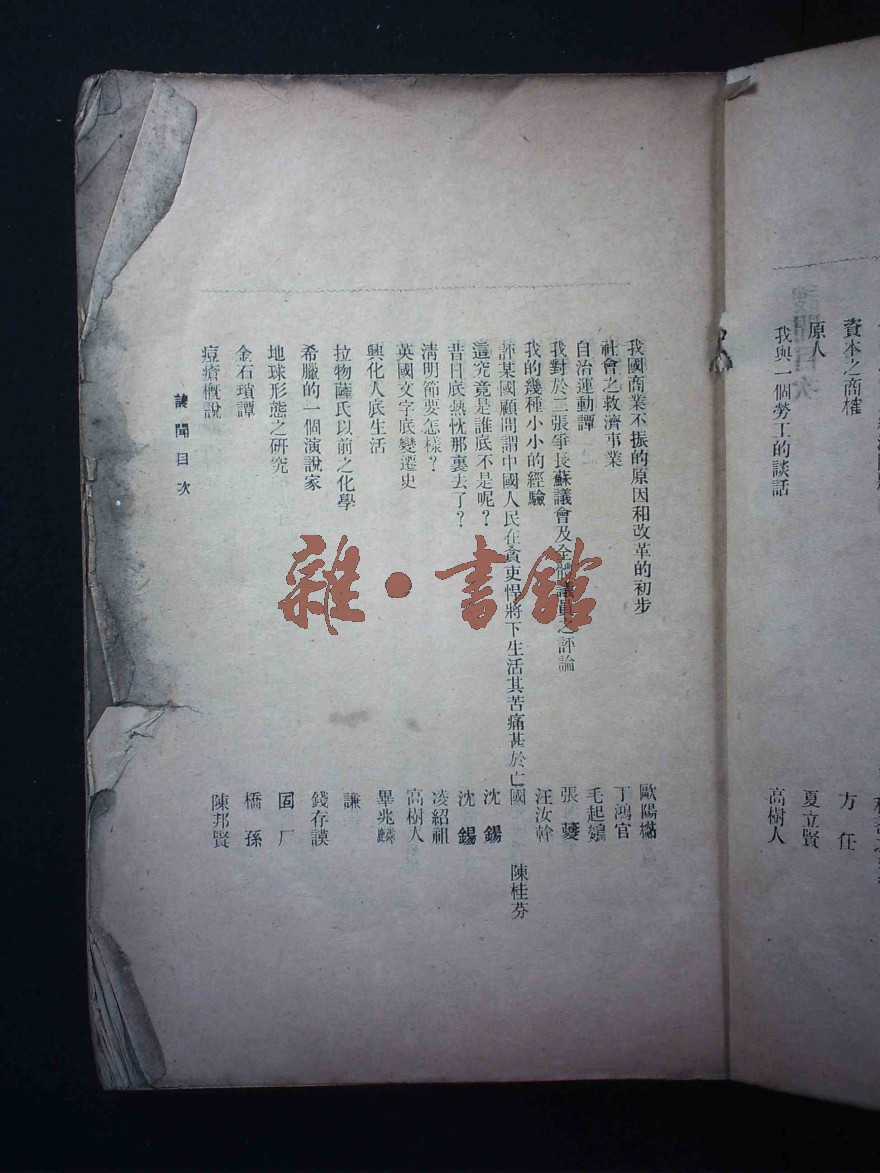 資本之商榷
方任
原人
夏立賢
我與一個勞工的談話
高樹人
我國商業不振的原因和改革的初步
歐陽
社會之救濟事業
丁鴻官
自治運動譚
毛起鵷
我對於二張爭長蘇議會及全體議員之評論
張
我的幾種小小的經驗
汪汝幹
評某國顧問謂中國人民在貪吏悍將下生活其苦痛甚於亡國
陳桂芬
這究竟是誰底不是呢?
沈鍚
昔日底熱忱那裏去了?
沈鍚
清明節要怎樣?
凌紹祖
英國文字底變遷史
高樹人
興化人底生活
畢兆麟
拉物薩氏以前之化學
謙
希臘的一個演說家
錢存謨
地球形態之研究
固厂
金石瑣譚
橋孫
痘瘡概說
陳邦賢
謏聞目次
雜·書館